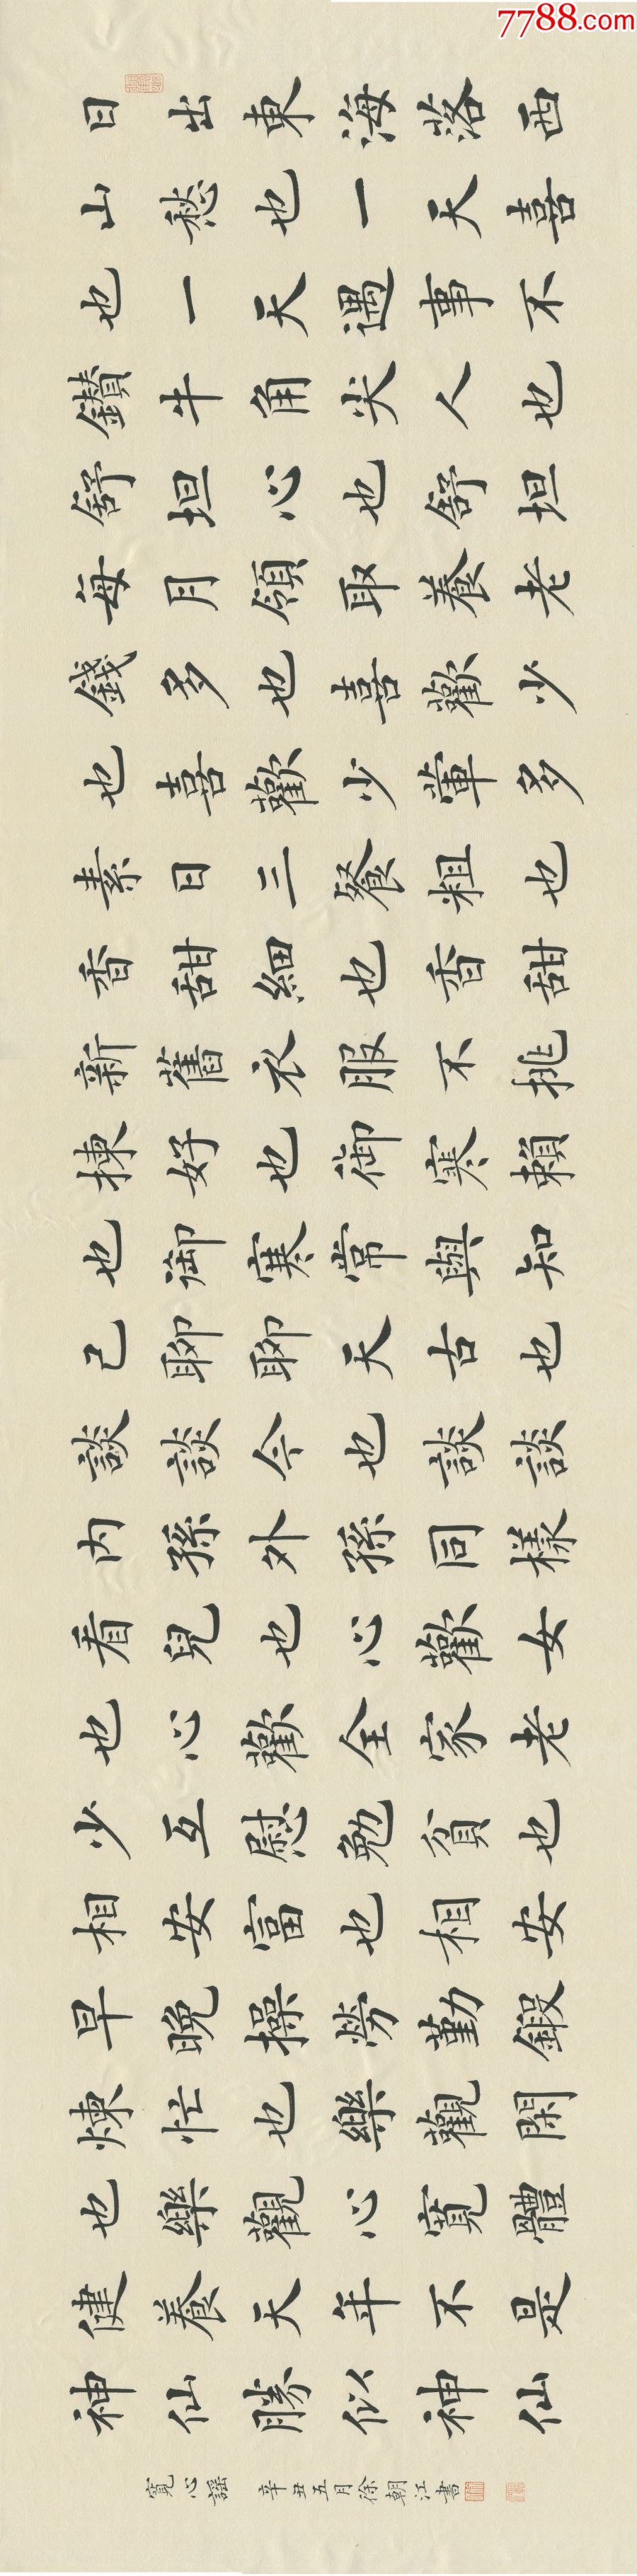 日出東海落西
山愁也一天喜
也一天遇事不
鑽牛角尖人也
舒坦心也舒坦
每月領取養老
錢多也喜歡少
也喜歡少葷多
素日三餐粗也
香甜細也香甜
新舊衣服不挑
揀好也御寒賴
也御寒常與知
己聊聊天古也
談談今也談談
内孫外孫同樣
看兒也心歡女
也心歡全家老
少互慰勉貧也
相安富也相安
早晚操勞勤鍛
煉忙也樂觀閑
也樂觀心寬體
健養天年不是
神仙勝似神仙
寬心謠 辛丑五月徐朝江書
7788.com